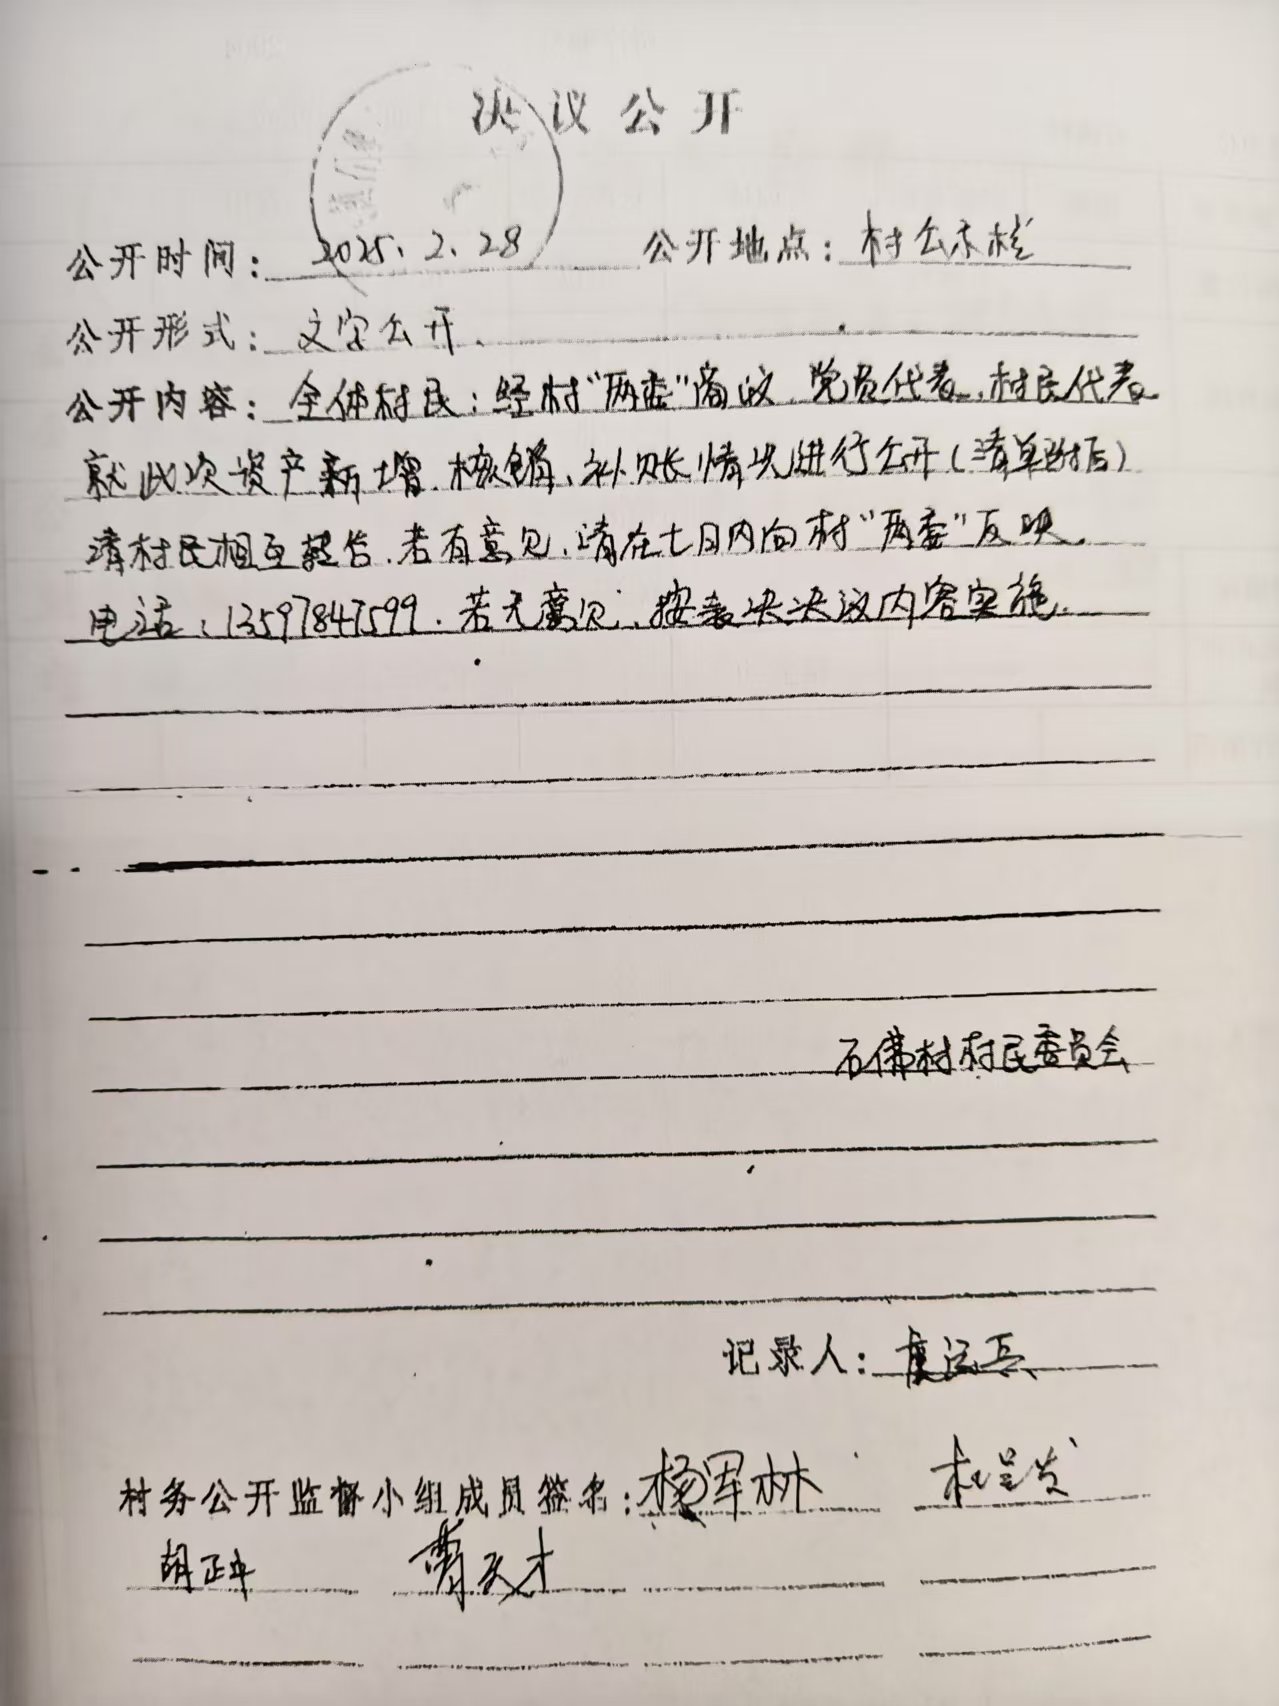 决议公开
公开时间：2025.2.28 公开地点：村公示栏
公开形式：文字公开.
公开内容：全体村民：经村“两委”商议.党员代表.村民代表
就此次资产新增.核销、补账情况进行公开(清单附后)
请村民相互转告.若有意见.请在七日内向村“两委”反映.
电话：13597847599.若无意见.按表决决议内容实施.
石佛村村民委员会
记录人：
村务公开监督小组成员签名：杨军林
胡正中 曹天才